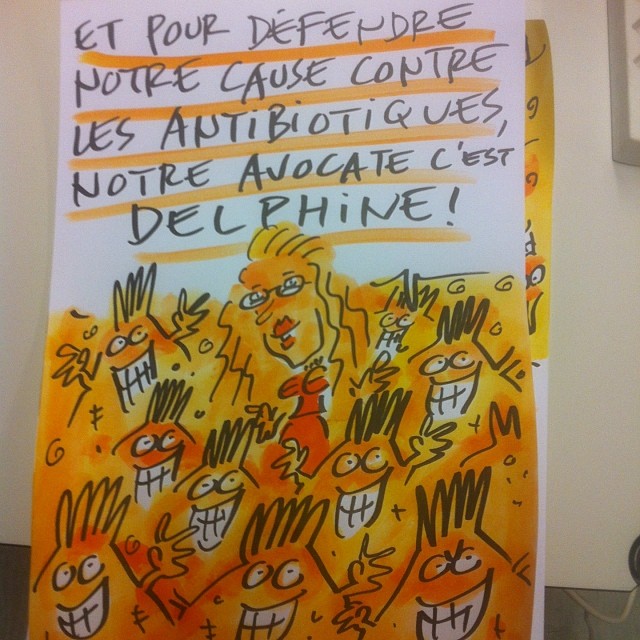 ET POUR DÉFENDRE
NOTRE CAUSE CONTRE
LES ANTIBIOTIQUES,
NOTRE AVOCATE C'EST
DELPHINE!